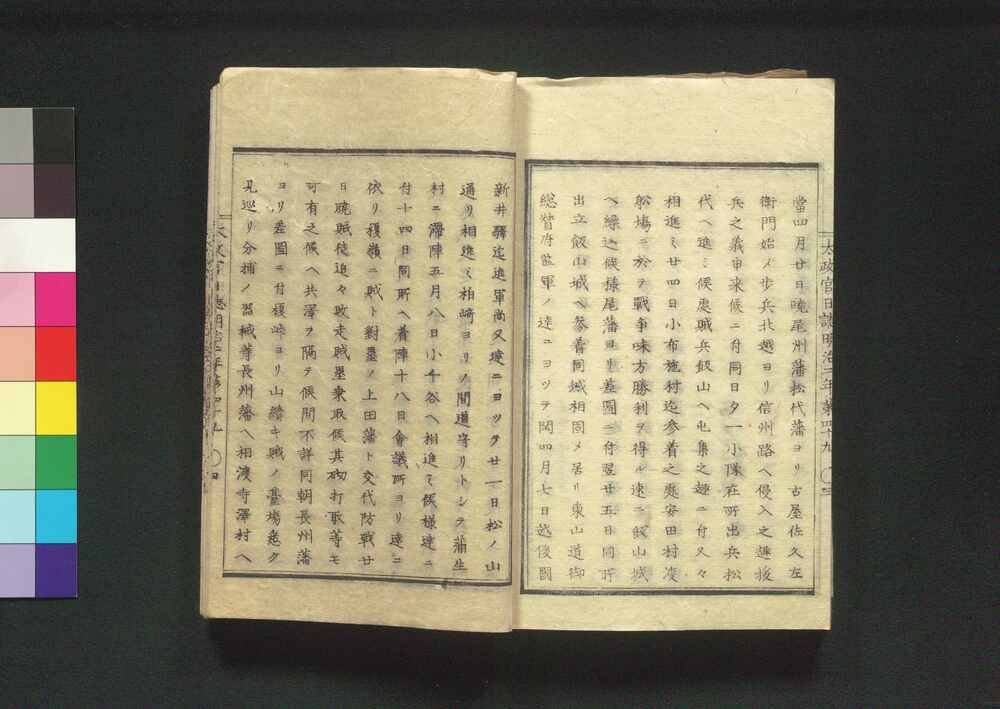 當四月廿日曉尾州藩松代藩ヨリ古屋佐久左
衛門始メ歩兵北越ヨリ信州路ヘ侵入之進援
兵之義申来候ニ付同日夕一小隊在所出兵松
代ヘ進ミ候處賊兵飯山ヘ屯集之趣ニ付又々
相進ミ廿四日小布施村迄参着之處安田村渡
船場ニ於テ戰争味方勝利ヲ得ル速ニ飯山城
ヘ繰込候様尾藩ヨリ差圖ニ付翌廿五日同所
出立飯山城ヘ参着同城相固メ居リ東山道御
総督府監軍ノ達ニヨツテ閏四月七日越後國
太政官日誌明治二年第四十九 〇三
新井驛迄進軍尚又達ニヨツテ廿一日松ノ山
通リ相進ミ柏﨑ヨリノ間道守リトシテ蒲生
村ニ滞陣五月八日小千谷ヘ相進ミ候様達ニ
付十四日同所ヘ着陣十八日會議所ヨリ達ニ
依リ榎嶺ニ賊ト對壘ノ上田藩ト交代防戰廿
日曉賊徒追々敗走賊壘乗取候其砌打取等モ
可有之候ヘ共澤ヲ隔テ候間不詳同朝長州藩
ヨリ差圖ニ付榎峠ヨリ山續キ賊ノ臺場悉ク
見巡リ分捕ノ器械等長州藩ヘ相渡寺澤村ヘ